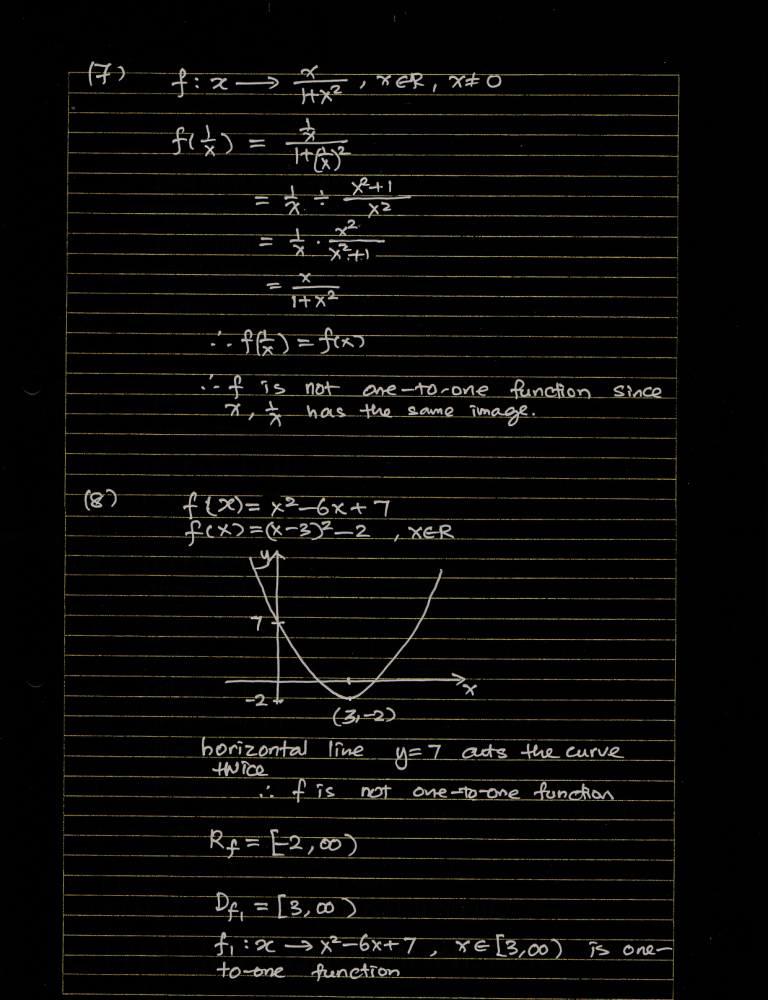 (7) f : x → x/(1+x²) , x∈R, x≠0
f(1/x) = (1/x)/(1+(1/x)²)
= 1/x ÷ (x²+1)/x²
= 1/x · x²/(x²+1)
= x/(1+x²)
∴ f(1/x) = f(x)
∴ f is not one-to-one function since
x, 1/x has the same image.
(8) f(x) = x²-6x+7
f(x) = (x-3)²-2 , x∈R
y
7
x
-2
(3,-2)
horizontal line y=7 cuts the curve
twice
∴ f is not one-to-one function
Rf = [-2,∞)
Df₁ = [3,∞)
f₁ : x → x²-6x+7 , x∈[3,∞) is one-
to-one function